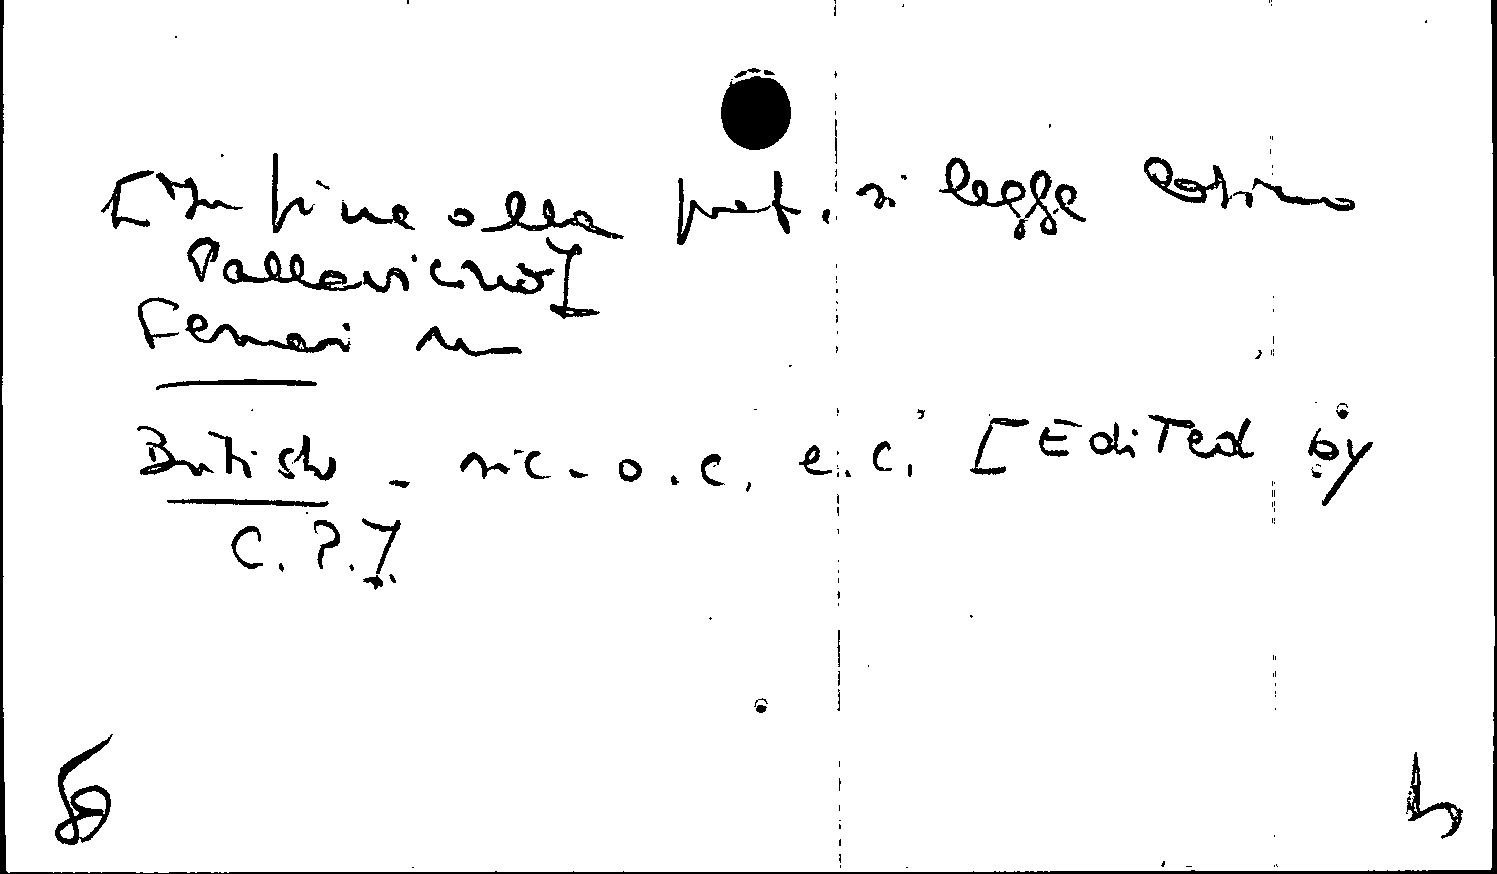 [In fine alla pref. si legge Cosimo
Pallavicino]
Ferrari no
British - sic - o.c. e.c. [Edited by
C. P.].